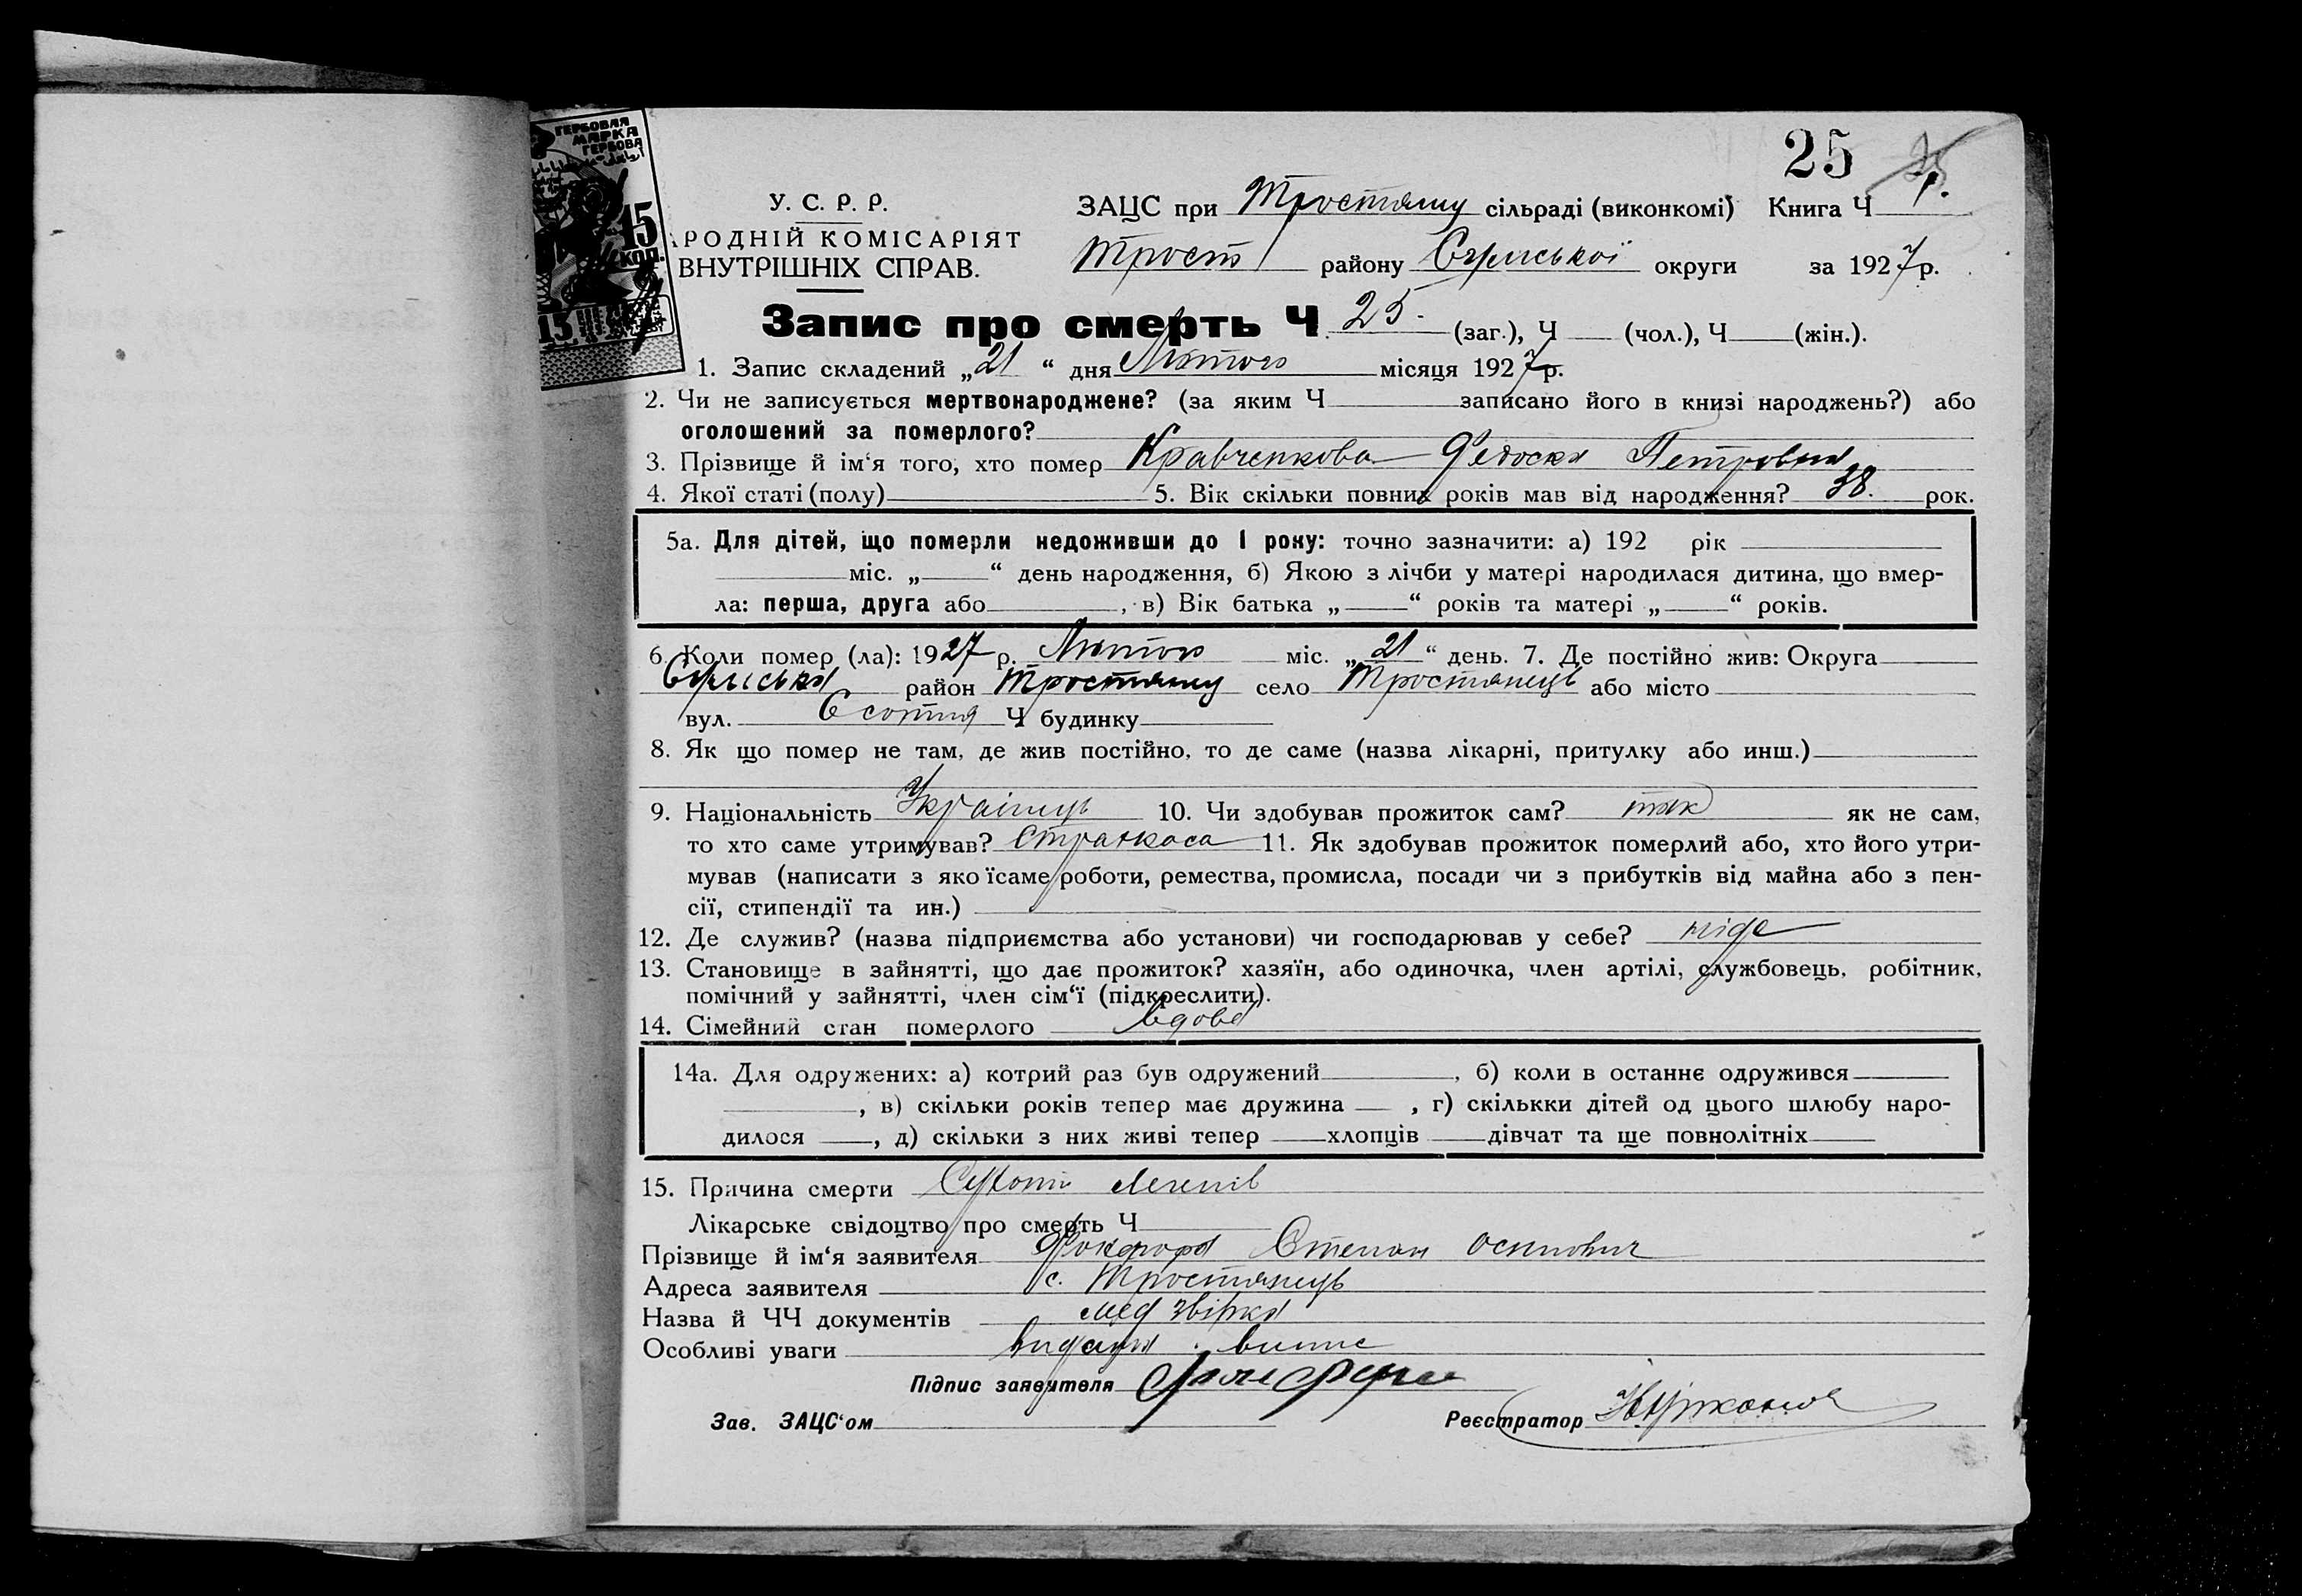 25
ГЕРБОВАЯ
МАРКА
ГЕРБОВА
15
КОП.
15
У. С. Р. Р.
АРОДНІЙ КОМІСАРІЯТ
ВНУТРІШНІХ СПРАВ.
ЗАЦС при Тростянец сільраді (виконкомі) Книга Ч 1.
Трост району Сумської округи за 1927 р.
Запис про смерть Ч 25. (заг.), Ч (чол.), Ч (жін.).
1. Запис складений „21“ дня Лютого місяця 1927 р.
2. Чи не записується мертвонароджене? (за яким Ч записано його в книзі народжень?) або
оголошений за померлого?
3. Прізвище й ім‘я того, хто помер Кравченкова Федоска Петровна
4. Якої статі (полу) 5. Вік скільки повних років мав від народження? 38. рок.
5а. Для дітей, що померли недоживши до 1 року: точно зазначити: а) 192 рік
міс. „ “ день народження, б) Якою з лічби у матері народилася дитина, що вмер-
ла: перша, друга або , в) Вік батька „ “ років та матері „ “ років.
6. Коли помер (ла): 1927 р. Лютого міс. „21“ день. 7. Де постійно жив: Округа
Сумська район Тростянец село Тростянець або місто
вул. 6 сотня Ч будинку
8. Як що помер не там, де жив постійно, то де саме (назва лікарні, притулку або инш.)
9. Національність Українець 10. Чи здобував прожиток сам? так як не сам,
то хто саме утримував? Страхкаса 11. Як здобував прожиток померлий або, хто його утри-
мував (написати з яко їсаме роботи, ремества, промисла, посади чи з прибутків від майна або з пен-
сії, стипендії та ин.)
12. Де служив? (назва підприємства або установи) чи господарював у себе? ніде
13. Становище в зайнятті, що дає прожиток? хазяїн, або одиночка, член артілі, службовець, робітник,
помічний у зайнятті, член сім‘ї (підкреслити).
14. Сімейний стан померлого вдова
14а. Для одружених: а) котрий раз був одружений , б) коли в останнє одружився
, в) скільки років тепер має дружина , г) скількки дітей од цього шлюбу наро-
дилося , д) скільки з них живі тепер хлопців дівчат та ще повнолітніх
15. Причина смерти Сухоти легенів
Лікарське свідоцтво про смерть Ч
Прізвище й ім‘я заявителя Степан Осипович
Адреса заявителя с. Тростянець
Назва й ЧЧ документів мед звірка
Особливі уваги видана випис
Підпис заявителя
Зав. ЗАЦС‘ом Реєстратор